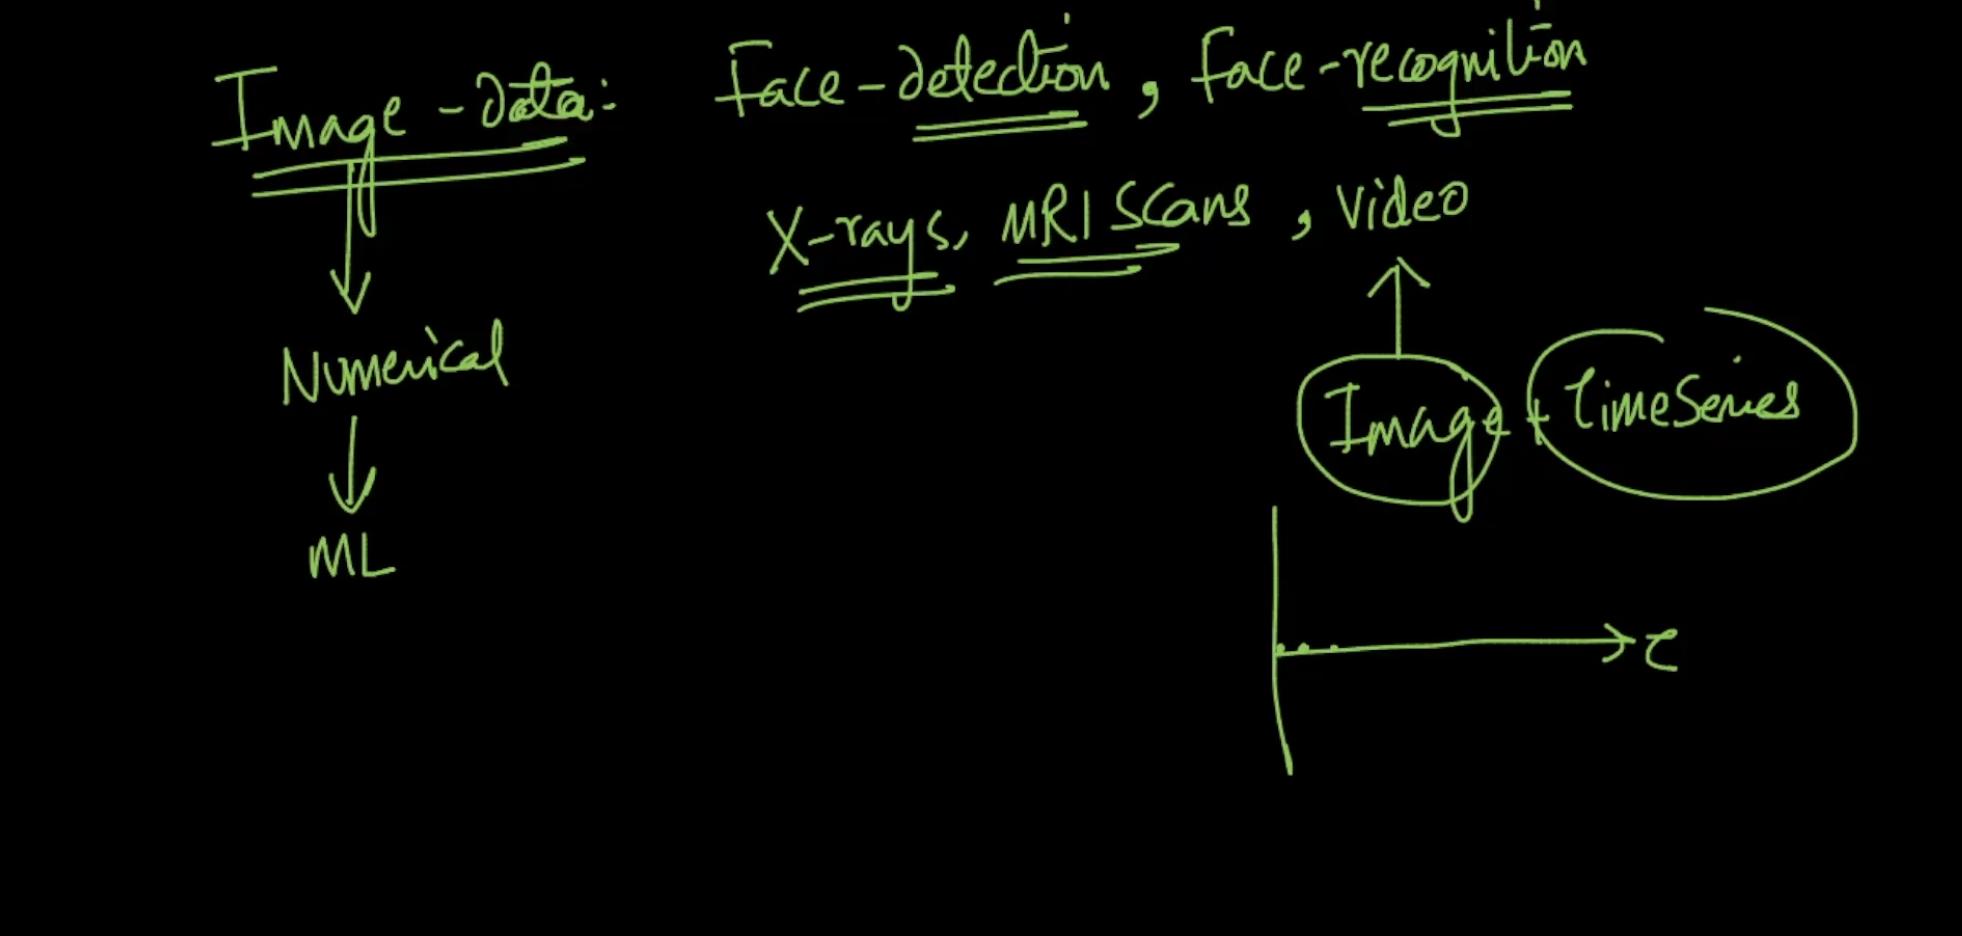 Image-data: Face-detection, Face-recognition
X-rays, MRI Scans, Video
Numerical
Image + TimeSeries
ML
t